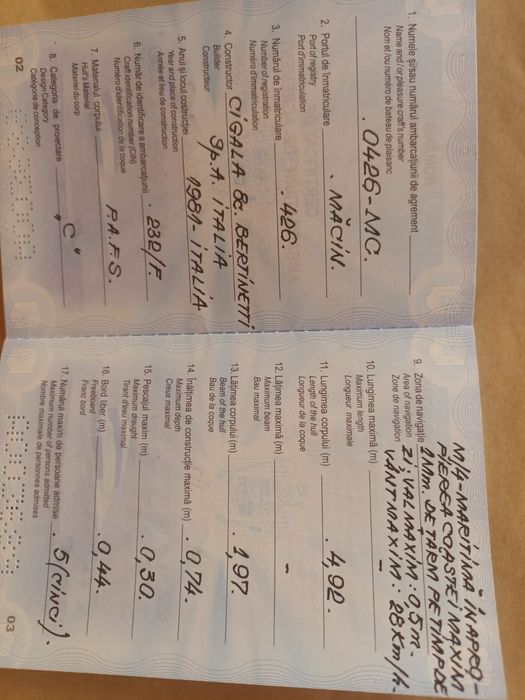 1. Numele și/sau numărul ambarcațiunii de agrement
Name and / or pleasure craft's number
Nom et /ou numéro de bateau de plaisanc
. 0426-MC.
2. Portul de înmatriculare
Port of registry
Port d'immatriculation
. MĂCIN.
3. Numărul de înmatriculare
Number of registration
Numéro d'immatriculation
. 426.
4. Constructor CIGALA & BERTINETTI
Builder
Constructeur
SpA. ITALIA
5. Anul și locul costrucției
Year and place of construction
Année et lieu de construction
1981-ITALIA
6. Număr de identificare a ambarcațiunii
Craft Identification number (CIN)
Numéro d'identification de la coque
. 232/F.
7. Materialul corpului
Hull's Material
Materiel du corp
P.A.F.S.
8. Categoria de proiectare
Design Category
Catégorie de conception
"C"
02
9. Zona de navigație
Area of navigation
Zone de navigation
M14-MARITIMA-ÎN APRO-
PIEREA COASTEI MAXIM
2Mm. DE ȚĂRM PE TIMP DE
ZI, VAL MAXIM: 0,5m-
VÂNT MAXIM: 28Km/h.
10. Lungimea maximă (m)
Maximum length
Longueur maximale
-
11. Lungimea corpului (m)
Length of the hull
Longueur de la coque
. 4,92.
12. Lățimea maximă (m)
Maximum beam
Bau maximal
-
13. Lățimea corpului (m)
Beam of the hull
Bau de la coque
. 1,97.
14. Înălțimea de construcție maximă (m)
Maximum depth
Creux maximal
. 0,74.
15. Pescajul maxim (m)
Maximum draught
Tirant d'eau maximal
. 0,30.
16. Bord liber (m)
Freeboard
Franc bord
. 0,44.
17. Numărul maxim de persoane admise
Maximum number of persons admitted
Nombre maximale de personnes admises
. 5 (cinci).
03